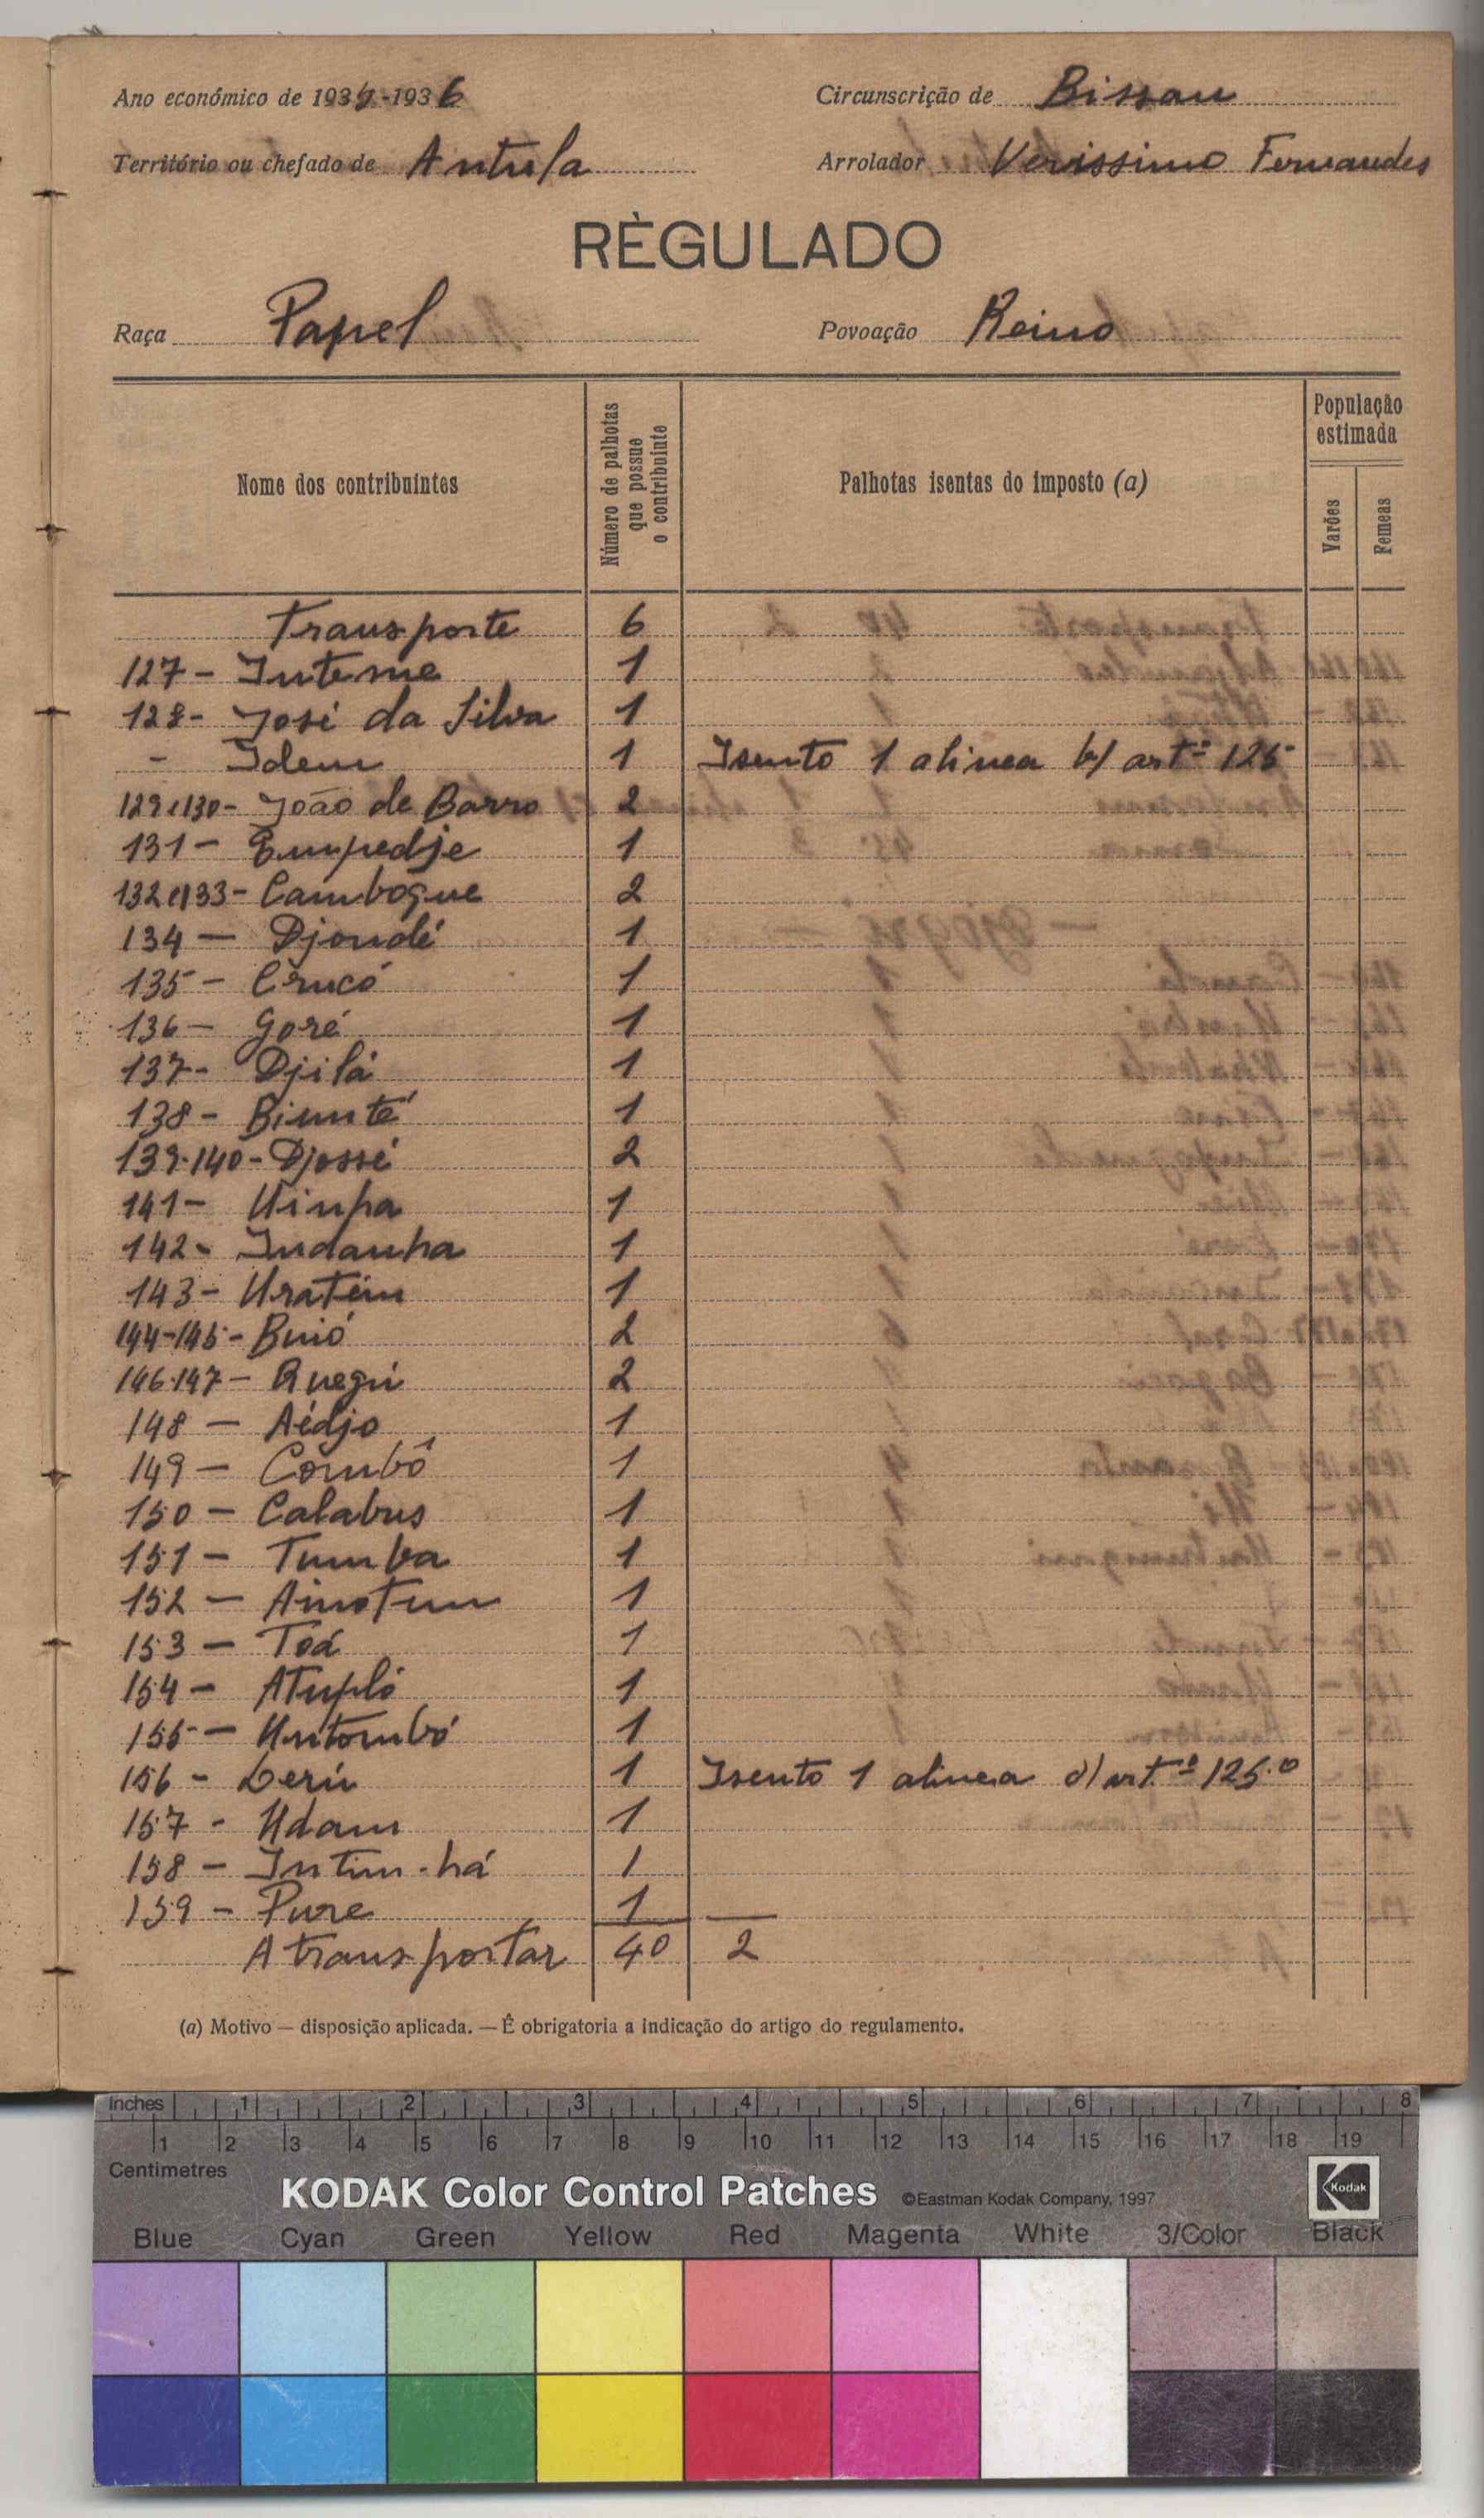 Ano económico de 1935-1936 Circunscrição de Bissau
Território ou chefado de Antula Arrolador Verissimo Fernandes
RÈGULADO
Raça Papel Povoação Reino
Nome dos contribuintes
Número de palhotas que possue o contribuinte
Palhotas isentas do imposto (a)
População estimada
Varões
Femeas
Transporte 6
127 - Inteme 1
128 - José da Silva 1
- Idem 1 Isento 1 alinea b) artº 125
129 e 130 - João de Barro 2
131 - Empedje 1
132 e 133 - Cambogue 2
134 - Djondé 1
135 - Crucó 1
136 - Goré 1
137 - Djilá 1
138 - Bimnté 1
139-140 - Djossé 2
141 - Uinpa 1
142 - Indanha 1
143 - Uratém 1
144-145 - Buió 2
146-147 - Quegui 2
148 - Aédjo 1
149 - Combô 1
150 - Calabus 1
151 - Tumba 1
152 - Ainotum 1
153 - Toá 1
154 - Atupló 1
155 - Untombó 1
156 - Derin 1 Isento 1 alinea d) art.º 125.º
157 - Udam 1
158 - Intim-há 1
159 - Pure 1
A transportar 40 2
(a) Motivo — disposição aplicada. — É obrigatoria a indicação do artigo do regulamento.
Inches 1 2 3 4 5 6 7 8
1 2 3 4 5 6 7 8 9 10 11 12 13 14 15 16 17 18 19
Centimetres
KODAK Color Control Patches ©Eastman Kodak Company, 1997 Kodak
Blue Cyan Green Yellow Red Magenta White 3/Color Black